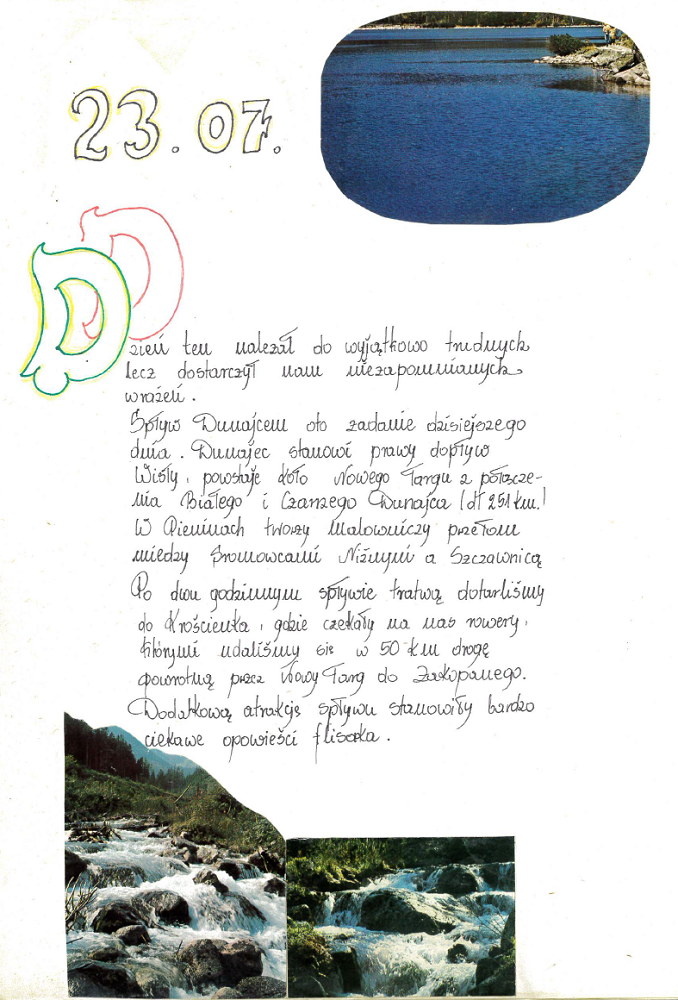 23.07.
Dzień ten należał do wyjątkowo trudnych
lecz dostarczył nam niezapomnianych
wrażeń.
Spływ Dunajcem oto zadanie dzisiejszego
dnia. Dunajec stanowi prawy dopływ
Wisły, powstaje koło Nowego Targu z połącze-
nia Białego i Czarnego Dunajca (dł 251 km.)
W Pieninach tworzy malowniczy przełom
między Sromowcami Niżnymi a Szczawnicą
Po dwu godzinnym spływie tratwą dotarliśmy
do Krościenka, gdzie czekały na nas rowery,
którymi udaliśmy się w 50 km drogę
powrotną przez Nowy Targ do Zakopanego.
Dodatkową atrakcję spływu stanowiły bardzo
ciekawe opowieści flisaka.